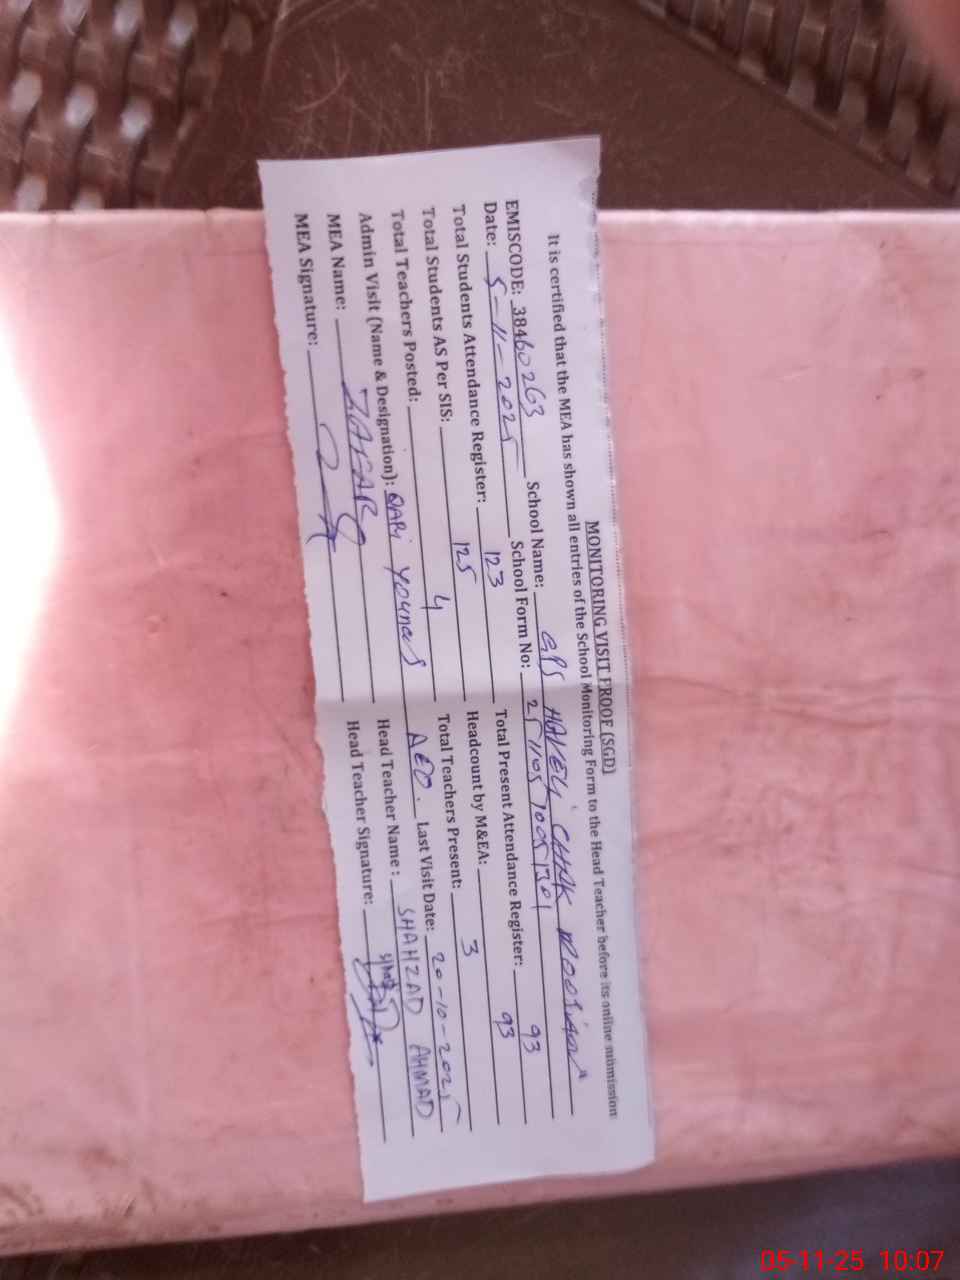 MONITORING VISIT PROOF (SGD)
It is certified that the MEA has shown all entries of the School Monitoring Form to the Head Teacher before its online submission
EMISCODE: 38460263 School Name: GPS HAVELI CHAK
Date: 5-11-2025 School Form No: 25110570051301
Total Students Attendance Register: 123 Total Present Attendance Register: 93
Total Students AS Per SIS: 125 Headcount by M&EA: 93
Total Teachers Posted: 4 Total Teachers Present: 3
Admin Visit (Name & Designation): QARi YOUNAS AEO. Last Visit Date: 20-10-2025
MEA Name: ZAFAR Head Teacher Name: SHAHZAD AHMAD
MEA Signature: Head Teacher Signature:
05-11-25 10:07